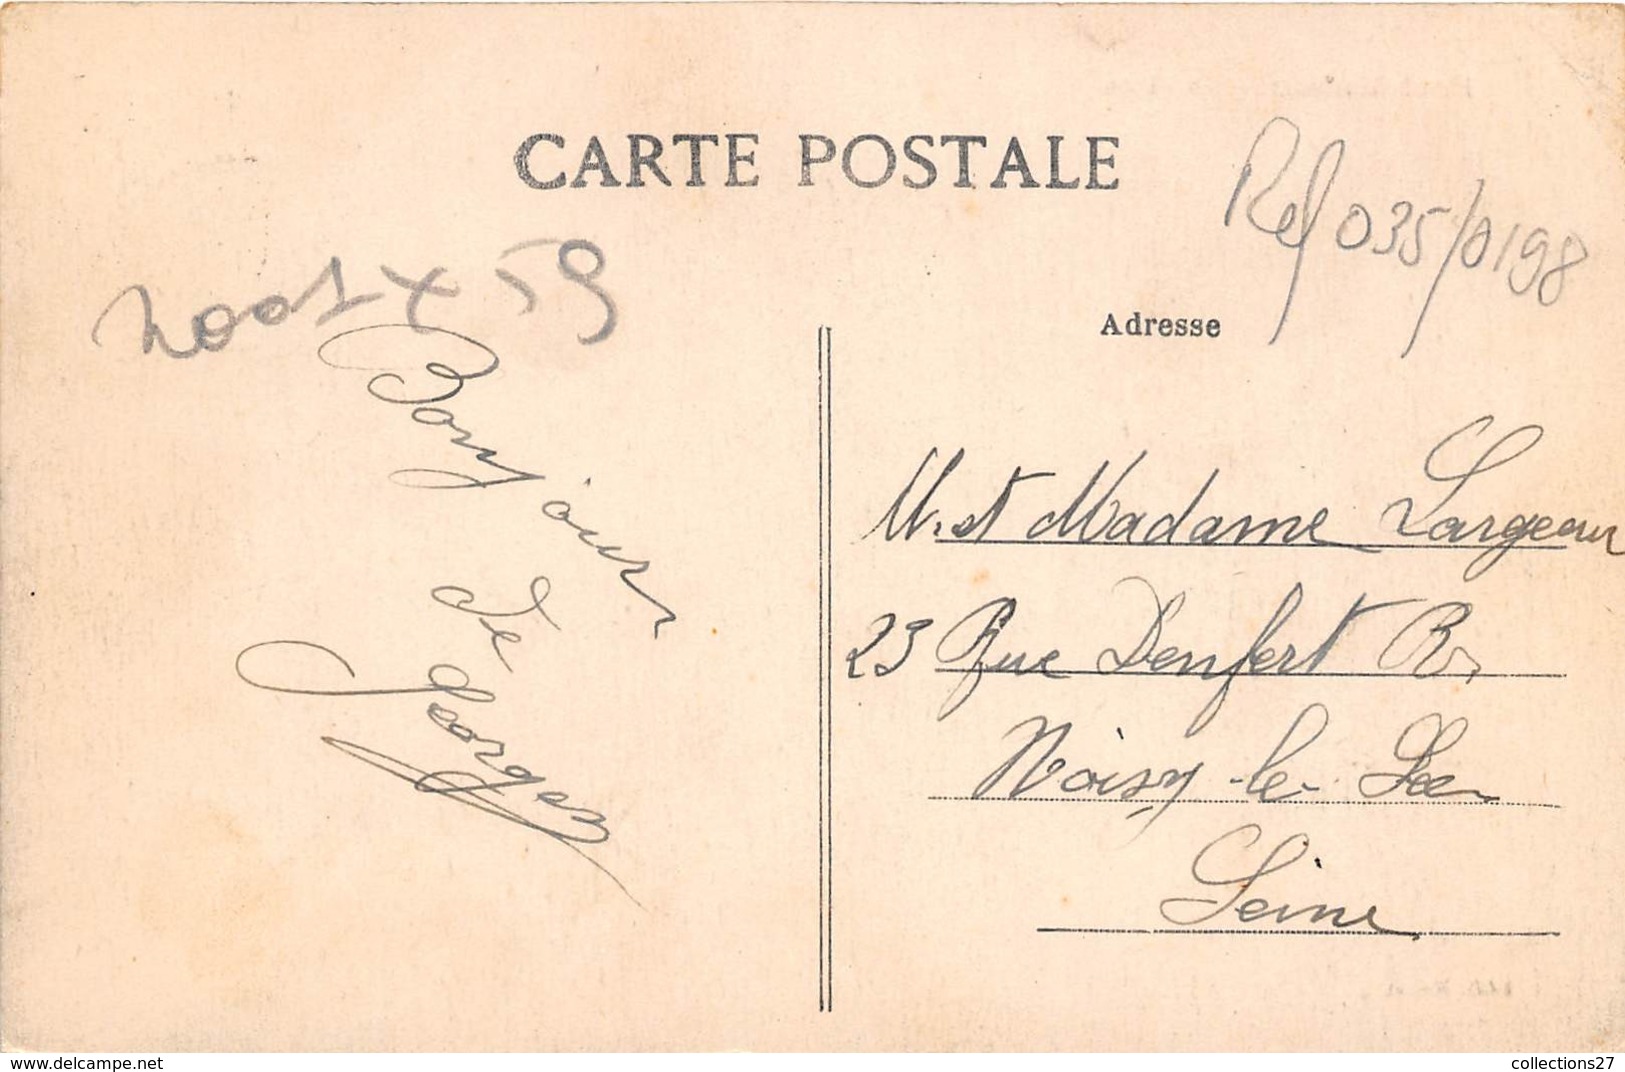 CARTE POSTALE
Ref 035/0198
2001 x 59
Bonjour
de
Georges
Adresse
M. et Madame Largeau
23 Rue Denfert R.
Noisy-le-Sec
Seine
delcampe.net
collections27